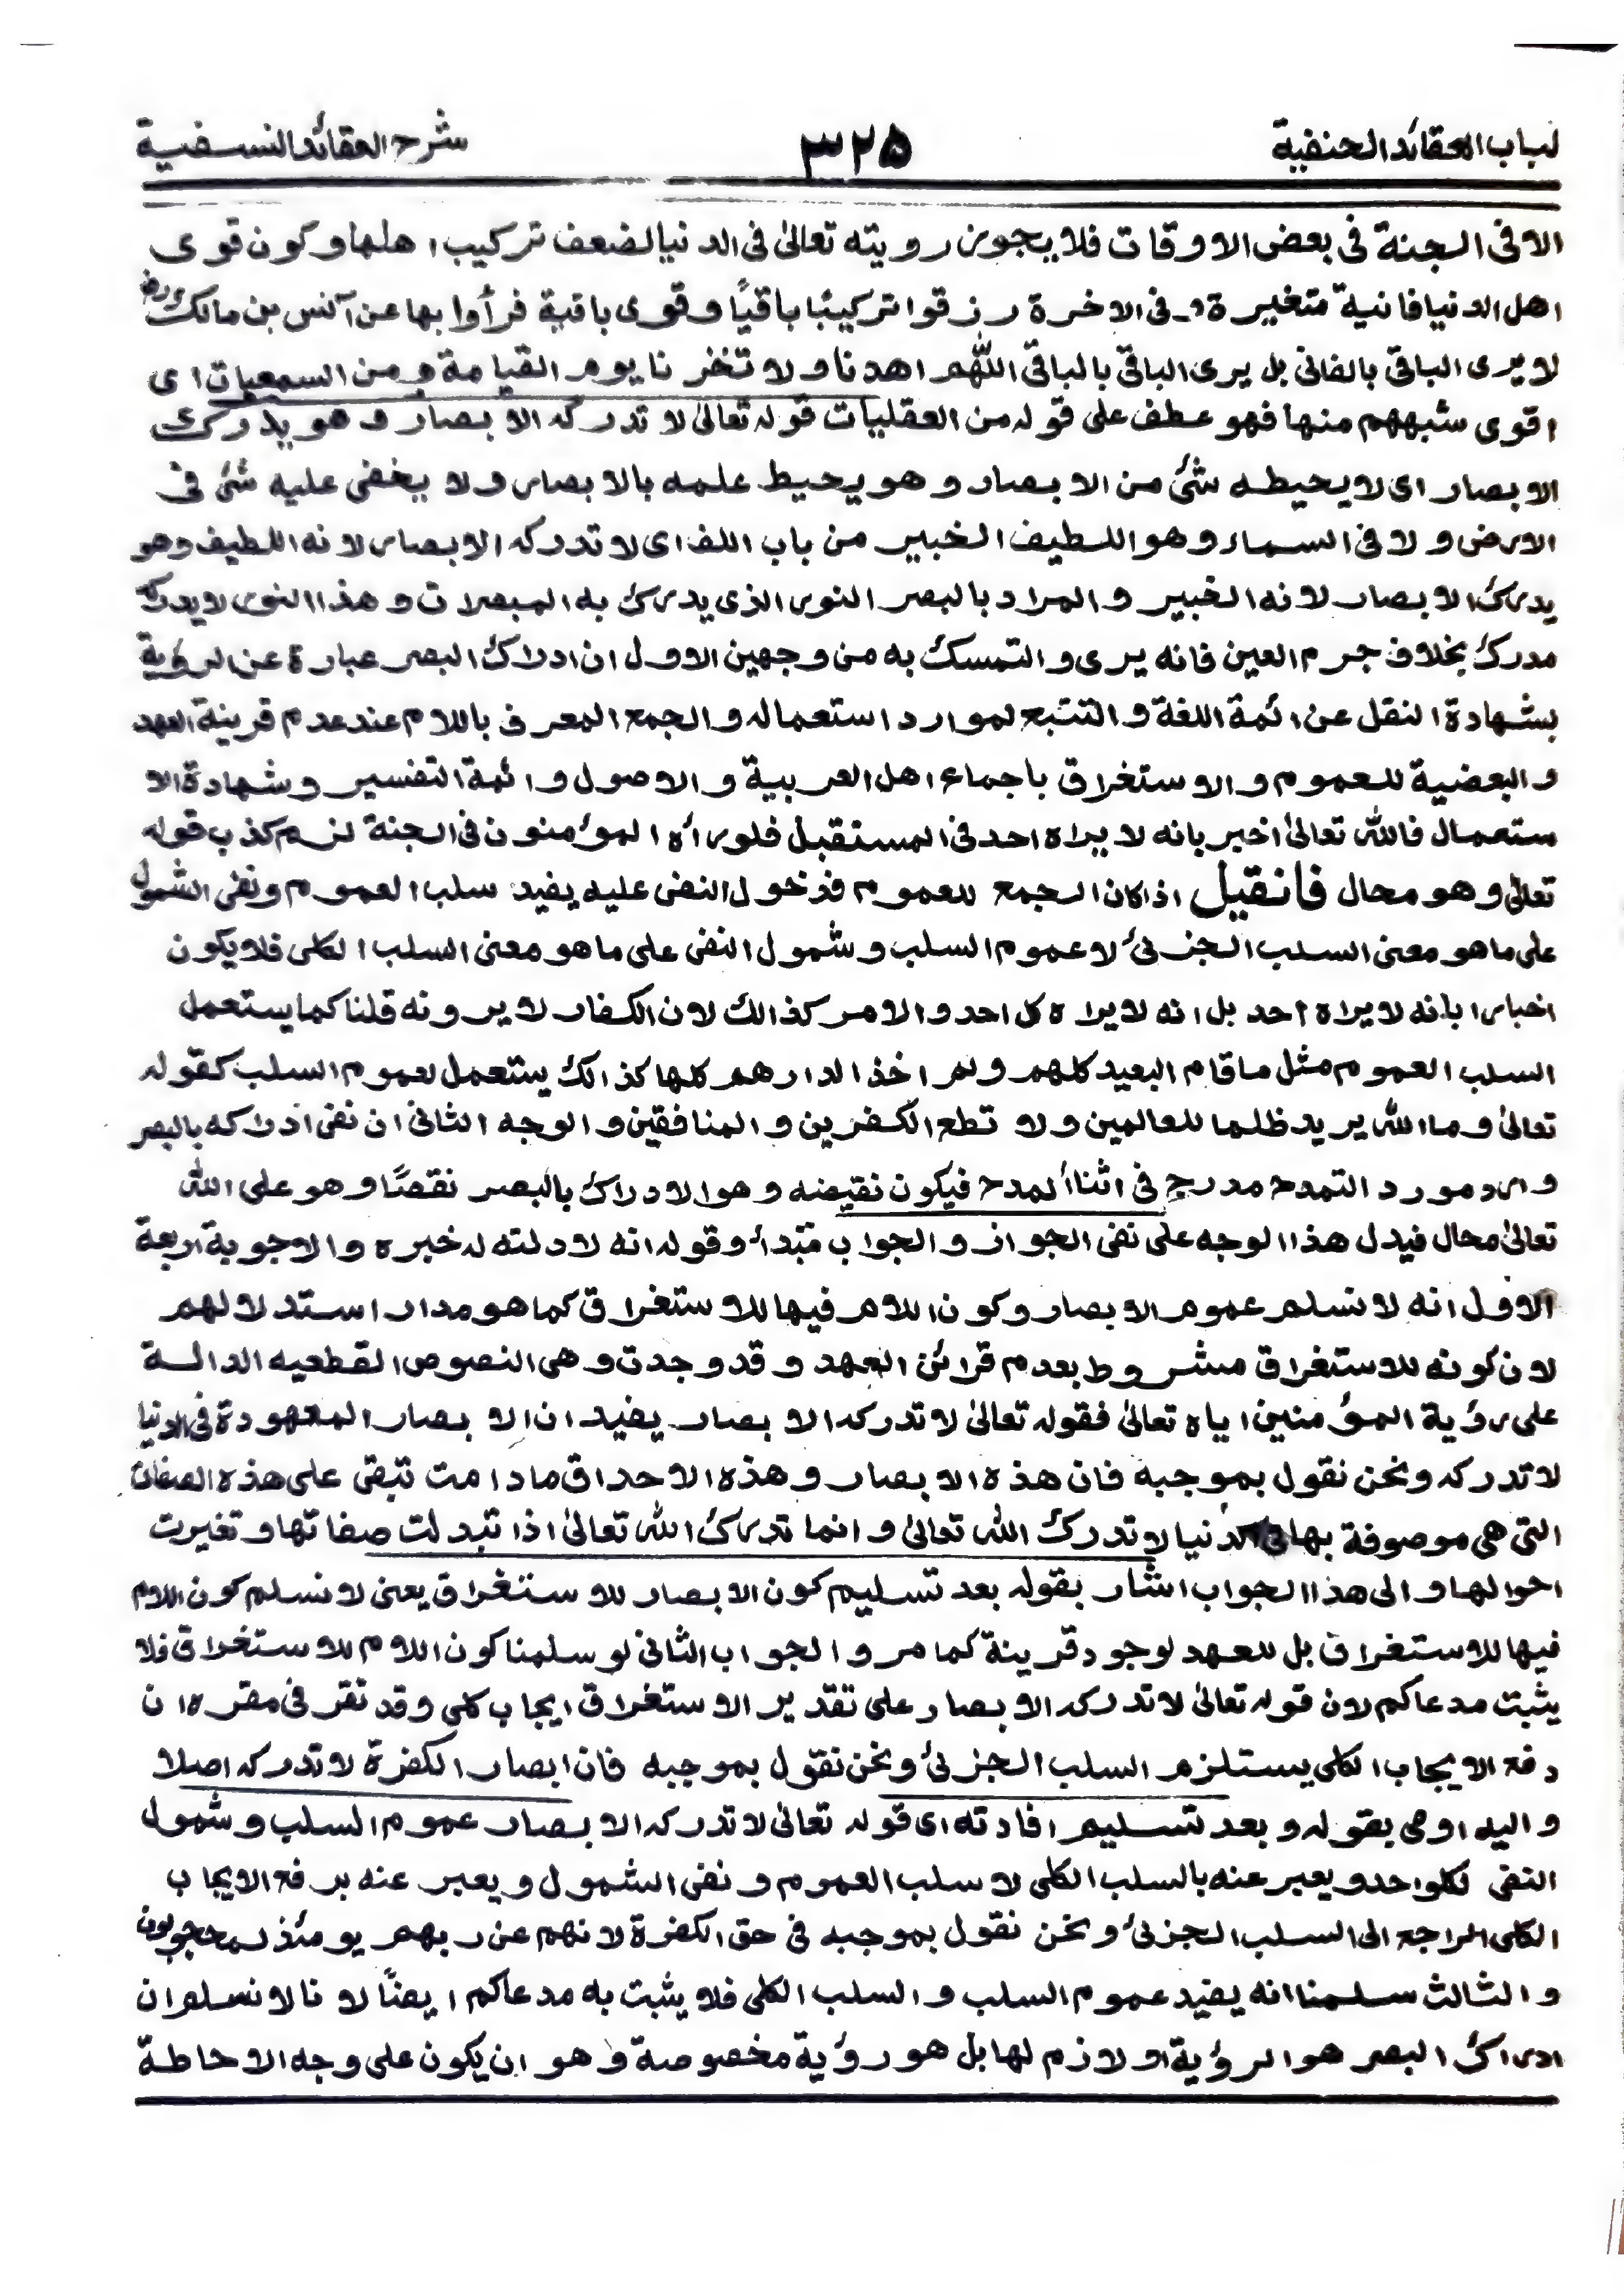 لباب العقائد الحنفية ۳۲۵ شرح العقائد النسفية
الا فى الجنة فى بعض الاوقات فلا يجوز رويته تعالىٰ فى الدنيا لضعف تركيب اهلها وكون قوى
اهل الدنيا فانية متغيرة و فى الاخرة رزقوا تركيبًا باقيًا وقوى باقية فرأوا بها عن آنس بن مالكؓ
لا يرى الباقى بالفانى بل يرى الباقى بالباقى اللّٰهم اهدنا ولا تخزنا يوم القيامة ومن السمعيات اى
اقوى شبههم منها فهو عطف على قوله من العقليات قوله تعالىٰ لا تدركه الابصار وهو يدرك
الابصار اى لا يحيطه شئ من الابصار وهو يحيط علمه بالابصار ولا يخفى عليه شئ فى
الارض ولا فى السماء وهو اللطيف الخبير من باب اللف اى لا تدركه الابصار لانه اللطيف وهو
يدرك الابصار لانه الخبير والمراد بالبصر النور الذى يدرك به المبصرات وهذا النور لا يدركه
مدرك بخلاف جرم العين فانه يرى والتمسك به من وجهين الاول ان ادراك البصر عبارة عن الرؤية
بشهادة النقل عن ائمة اللغة والتتبع لموارد استعماله والجمع المعرف باللام عند عدم قرينة العهد
والبعضية للعموم والاستغراق باجماع اهل العربية والاصول وائمة التفسير وشهادة الا
ستعمال فالله تعالىٰ اخبر بانه لا يراه احد فى المستقبل فلو رأه المؤمنون فى الجنة لزم كذب قوله
تعالىٰ وهو محال فانقيل اذا كان الجمع للعموم فدخول النفى عليه يفيد سلب العموم ونفى الشمول
على ما هو معنى السلب الجزئى لا عموم السلب وشمول النفى على ما هو معنى السلب الكلى فلا يكون
اخبارا بانه لا يراه احد بل انه لا يراه كل احد والامر كذالك لان الكفار لا يرونه قلنا كما يستعمل
السلب العموم مثل ما قام البعيد كلهم ولم اخذ الدارهم كلها كذالك يستعمل لعموم السلب كقوله
تعالىٰ وما الله يريد ظلما للعالمين ولا تطع الكفرين والمنافقين والوجه الثانى ان نفى ادراكه بالبصر
وارد مورد التمدح مدرج فى اثناء المدح فيكون نقيضه وهو الادراك بالبصر نقصًا وهو على الله
تعالىٰ محال فيدل هذا الوجه على نفى الجواز والجواب مبتدأ وقوله انه لا دلته له خبره والاجوبة اربعة
الاول انه لا نسلم عموم الابصار وكون اللام فيها للاستغراق كما هو مدار استدلالهم
لان كونه للاستغراق مشروط بعدم قرائن العهد وقد وجدت وهى النصوص القطعيه الدالة
على رؤية المؤمنين اياه تعالىٰ فقوله تعالىٰ لا تدركه الابصار يفيد ان الابصار المعهودة فى الدنيا
لا تدركه ونحن نقول بموجبه فان هذه الابصار وهذه الاحداق ما دامت تبقى على هذه الصفات
التى هى موصوفة بها فى الدنيا لا تدرك الله تعالىٰ وانما تدرك الله تعالىٰ اذا تبدلت صفاتها وتغيرت
احوالها والى هذا الجواب اشار بقوله بعد تسليم كون الابصار للاستغراق يعنى لا نسلم كون اللام
فيها للاستغراق بل للعهد لوجود قرينة كما مر والجواب الثانى لو سلمنا كون اللام للاستغراق فلا
يثبت مدعاكم لان قوله تعالىٰ لا تدركه الابصار على تقدير الاستغراق ايجاب كلى وقد تقر فى مقره ان
دفع الايجاب الكلى يستلزم السلب الجزئى ونحن نقول بموجبه فان ابصار الكفرة لا تدركه اصلا
واليه اومى بقوله وبعد تسليم افادته اى قوله تعالىٰ لا تدركه الابصار عموم السلب وشمول
النفى لكلواحد ويعبر عنه بالسلب الكلى لا سلب العموم ونفى الشمول ويعبر عنه برفع الايجاب
الكلى الراجع الى السلب الجزئى ونحن نقول بموجبه فى حق الكفرة لانهم عن ربهم يومئذ لمحجوبون
والثالث سلمنا انه يفيد عموم السلب والسلب الكلى فلا يثبت به مدعاكم ايضًا لانا لا نسلم ان
ادراك البصر هو الرؤية او لازم لها بل هو رؤية مخصوصة وهو ان يكون على وجه الاحاطة